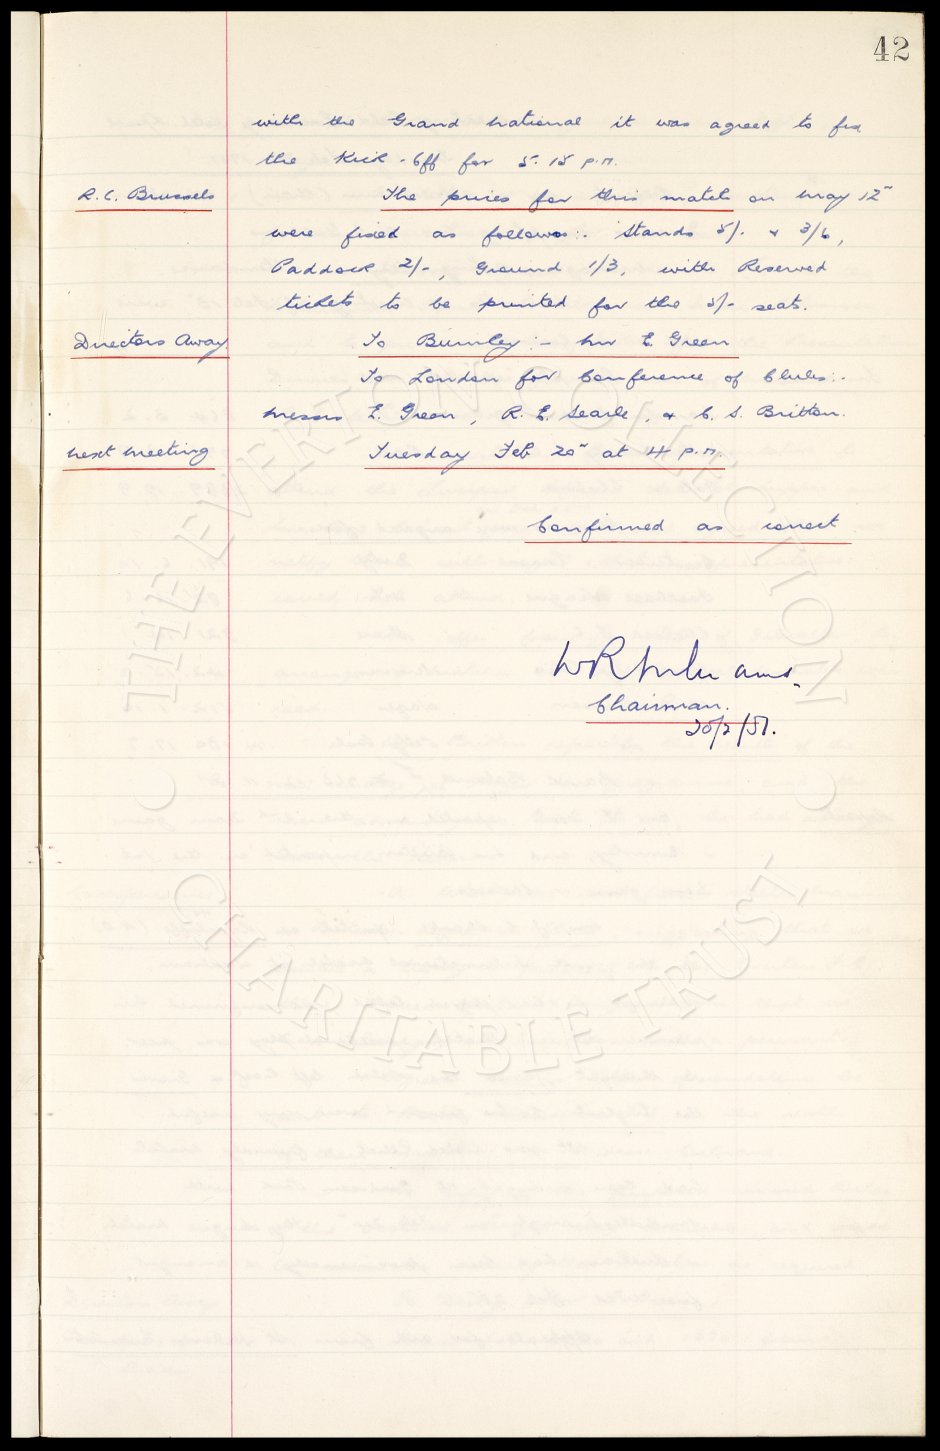 42
with the Grand National it was agreed to fix
the Kick-Off for 5.15 p.m.
R.C. Brussels The prices for this match on May 12"
were fixed as follows:- Stands 5/- & 3/6,
Paddock 2/-, Ground 1/3, with Reserved
tickets to be printed for the 5/- seats.
Directors Away. To Burnley:- Mr E. Green
To London for Conference of Clubs:-
Messrs E. Green, R. E. Searle, & C. S. Britton.
Next Meeting Tuesday Feb 20" at 4 p.m.
Confirmed as correct
W R Williams.
Chairman.
20/2/51.
THE EVERTON COLLECTION
CHARITABLE TRUST